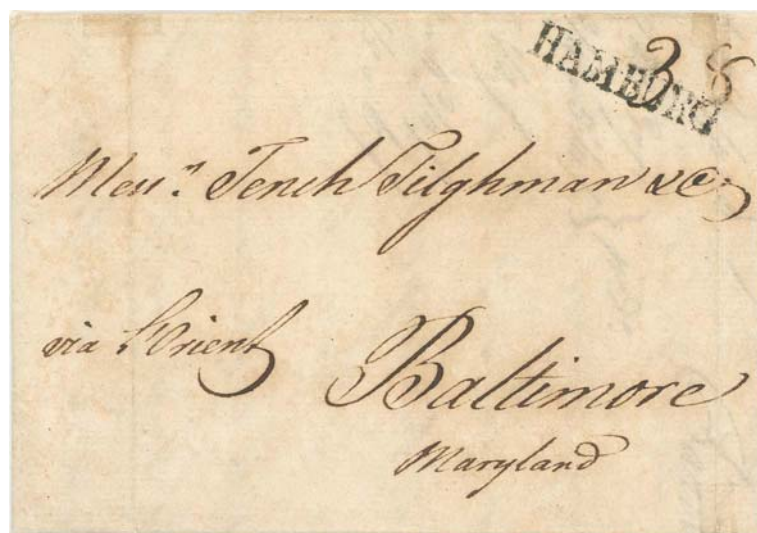 HAMBURG
3 8
Messrs. Tench Tilghman & Co
via L'Orient
Baltimore
Maryland